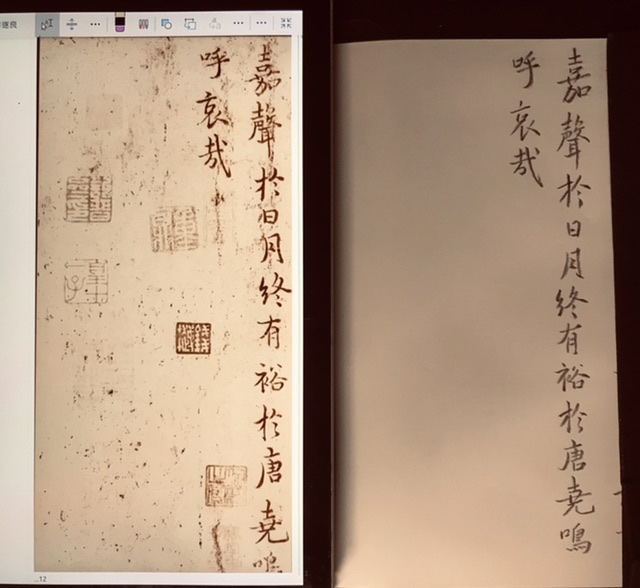 遂良
嘉聲於日月終有裕於唐堯嗚
呼哀哉
12
嘉聲於日月終有裕於唐堯嗚
呼哀哉